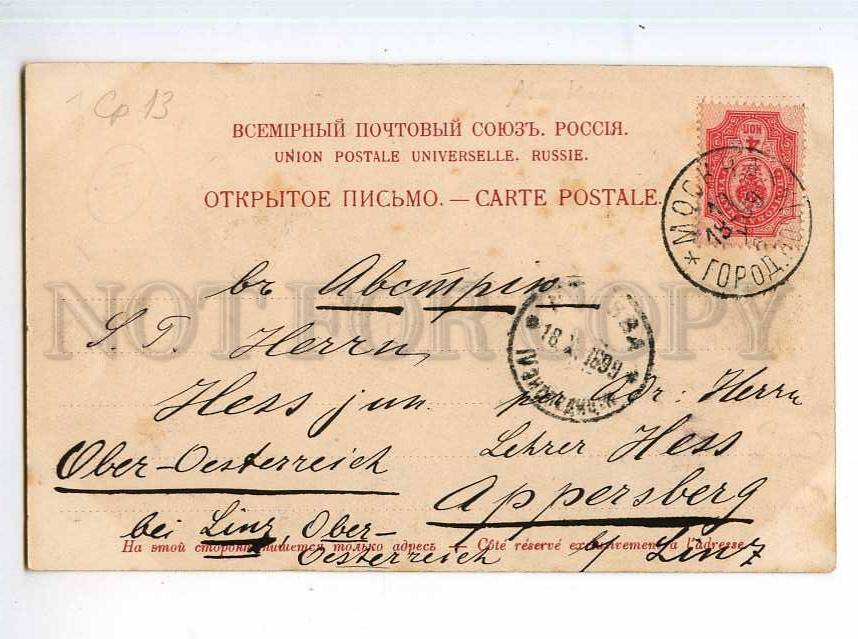 Ср 13
ВСЕМІРНЫЙ ПОЧТОВЫЙ СОЮЗЪ. РОССІЯ.
UNION POSTALE UNIVERSELLE. RUSSIE.
ОТКРЫТОЕ ПИСЬМО. — CARTE POSTALE.
4 КОП
МОСКВА
ГОРОД.
въ Австрію
NOT FOR COPY
МОСКВА
18.X.1899
S. T. Herrn
Hess jun per Adr: Herrn
Ober-Oesterreich Lehrer Hess
Appersberg
bei Linz, Ober-
Oesterreich b/ Linz
На этой сторонѣ пишется только адресъ. — Côté réservé exclusivement à l'adresse.